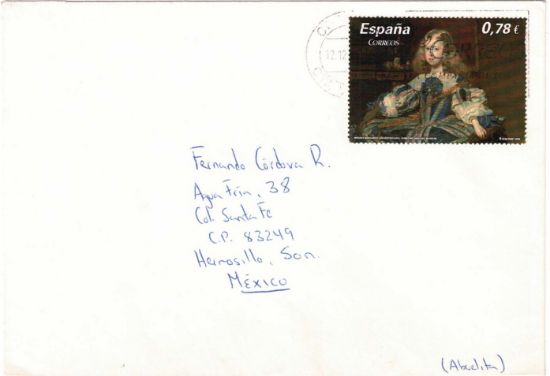 España 0,78 €
CORREOS
12.12
Fernando Córdova R.
Agua Fría, 38
Col. Santa Fe
C.P. 83249
Hermosillo, Son.
México
(Abuelita)